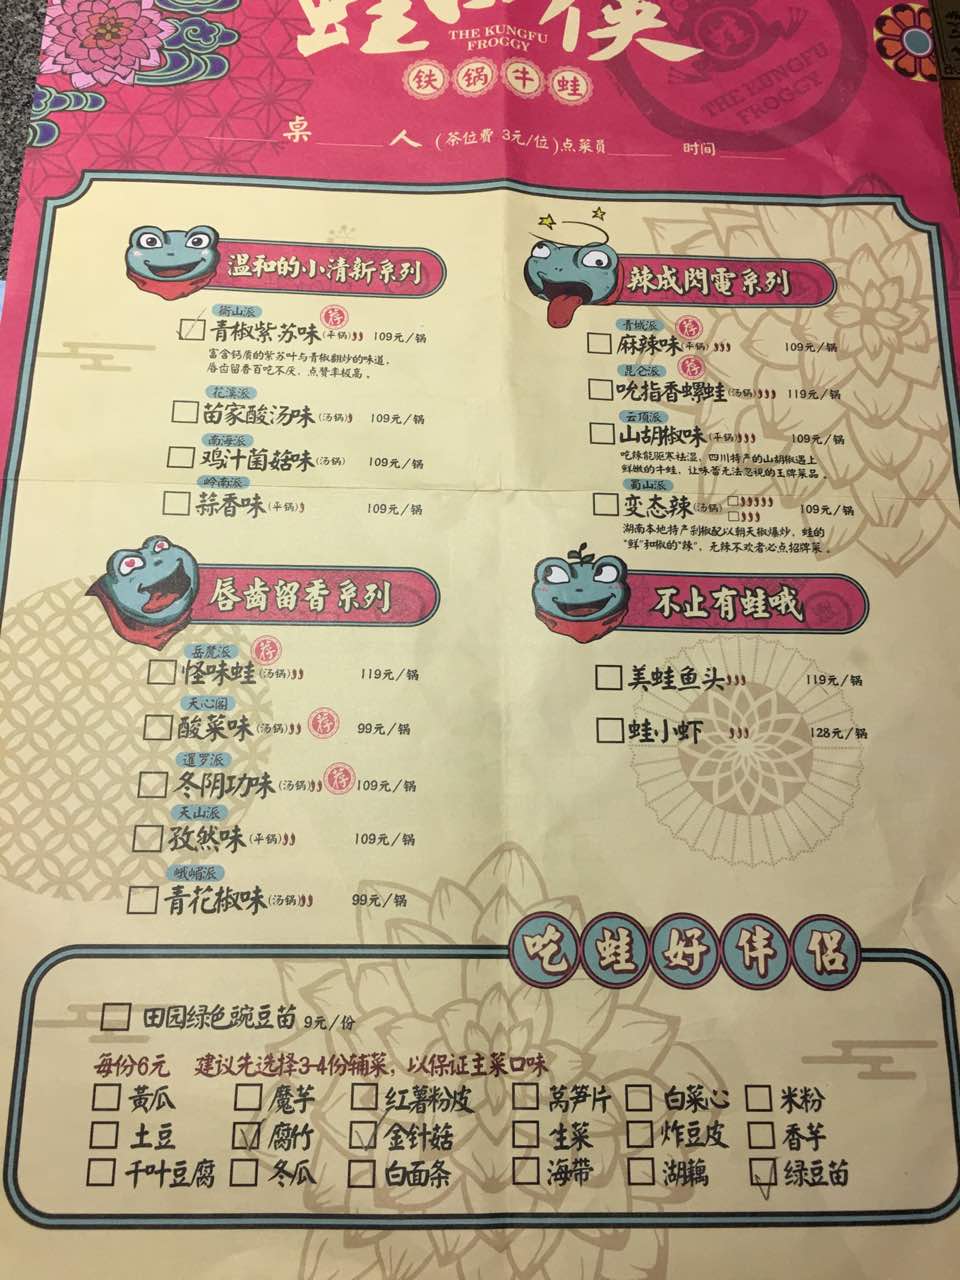 蛙 侠
THE KUNGFU
FROGGY
铁锅牛蛙
THE KUNGFU
FROGGY
桌 人 (茶位費 3元/位) 点菜员 时间
温和的小清新系列
衡山派
青椒紫苏味(平锅) 荐 109元/锅
富含钙质的紫苏叶与青椒翻炒的味道,
唇齿留香百吃不厌,点赞率极高。
花溪派
苗家酸汤味(汤锅) 109元/锅
南海派
鸡汁菌菇味(汤锅) 109元/锅
岭南派
蒜香味(平锅) 109元/锅
辣成閃電系列
青城派
麻辣味(平锅) 荐 109元/锅
昆仑派
吮指香螺蛙(汤锅) 荐 119元/锅
云顶派
山胡椒味(平锅) 109元/锅
吃辣能驱寒祛湿,四川特产的山胡椒遇上
鲜嫩的牛蛙,让味蕾无法忽视的王牌菜品。
蜀山派
变态辣(汤锅) 109元/锅
湖南本地特产剁椒配以朝天椒爆炒,蛙的
"鲜"和椒的"辣",无辣不欢者必点招牌菜。
唇齿留香系列
岳麓派
怪味蛙(汤锅) 荐 119元/锅
天心阁
酸菜味(汤锅) 荐 99元/锅
暹罗派
冬阴功味(汤锅) 荐 109元/锅
天山派
孜然味(平锅) 109元/锅
峨嵋派
青花椒味(汤锅) 99元/锅
不止有蛙哦
美蛙鱼头 119元/锅
蛙小虾 128元/锅
吃蛙好伴侣
田园绿色豌豆苗 9元/份
每份6元 建议先选择3-4份辅菜,以保证主菜口味
黄瓜 魔芋 红薯粉皮 莴笋片 白菜心 米粉
土豆 腐竹 金针菇 生菜 炸豆皮 香芋
千叶豆腐 冬瓜 白面条 海带 湖藕 绿豆苗